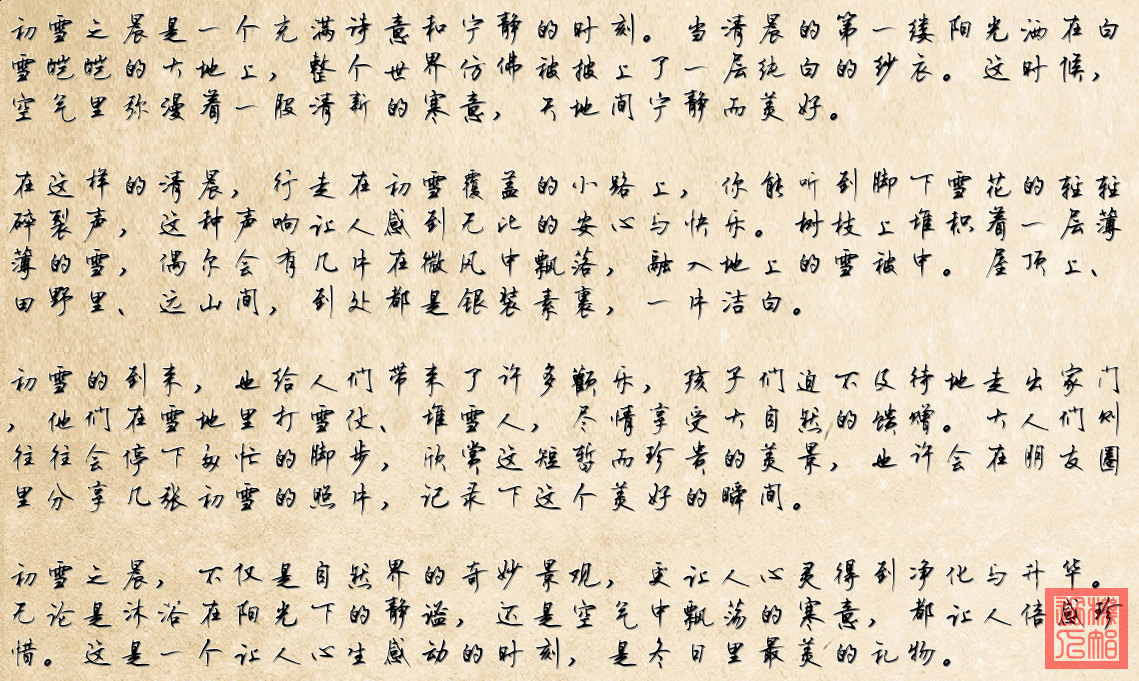 初雪之晨是一个充满诗意和宁静的时刻。当清晨的第一缕阳光洒在白
雪皑皑的大地上，整个世界仿佛被披上了一层纯白的纱衣。这时候，
空气里弥漫着一股清新的寒意，天地间宁静而美好。
在这样的清晨，行走在初雪覆盖的小路上，你能听到脚下雪花的轻轻
碎裂声，这种声响让人感到无比的安心与快乐。树枝上堆积着一层薄
薄的雪，偶尔会有几片在微风中飘落，融入地上的雪被中。屋顶上、
田野里、远山间，到处都是银装素裹，一片洁白。
初雪的到来，也给人们带来了许多欢乐，孩子们迫不及待地走出家门
，他们在雪地里打雪仗、堆雪人，尽情享受大自然的馈赠。大人们则
往往会停下匆忙的脚步，欣赏这短暂而珍贵的美景，也许会在朋友圈
里分享几张初雪的照片，记录下这个美好的瞬间。
初雪之晨，不仅是自然界的奇妙景观，更让人心灵得到净化与升华。
无论是沐浴在阳光下的静谧，还是空气中飘荡的寒意，都让人倍感珍
惜。这是一个让人心生感动的时刻，是冬日里最美的礼物。